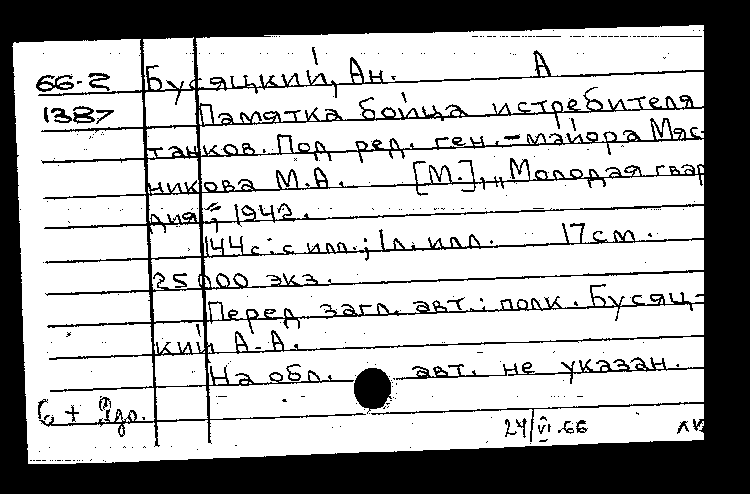 66-2 Бусяцкий, Ан. А
1387 Памятка бойца истребителя
танков. Под ред. ген.-майора Мяс-
никова М.А. [М.], „Молодая гвар
дия“, 1942.
144 с. с илл.; 1 л. илл. 17 см.
25 000 экз.
Перед загл. авт.: полк. Бусяц-
кий А.А.
На обл. авт. не указан.
6 +
24/VI.66